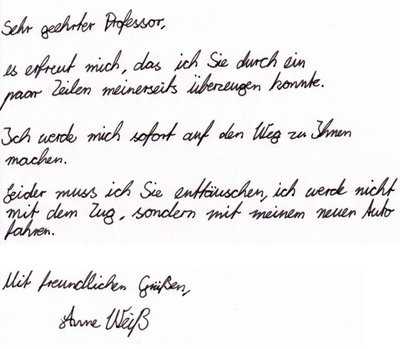 Sehr geehrter Professor,
es erfreut mich, das ich Sie durch ein
paar Zeilen meinerseits überzeugen konnte.
Ich werde mich sofort auf den Weg zu Ihnen
machen.
Leider muss ich Sie enttäuschen, ich werde nicht
mit dem Zug, sondern mit meinem neuen Auto
fahren.
Mit freundlichen Grüßen,
Anne Weiß